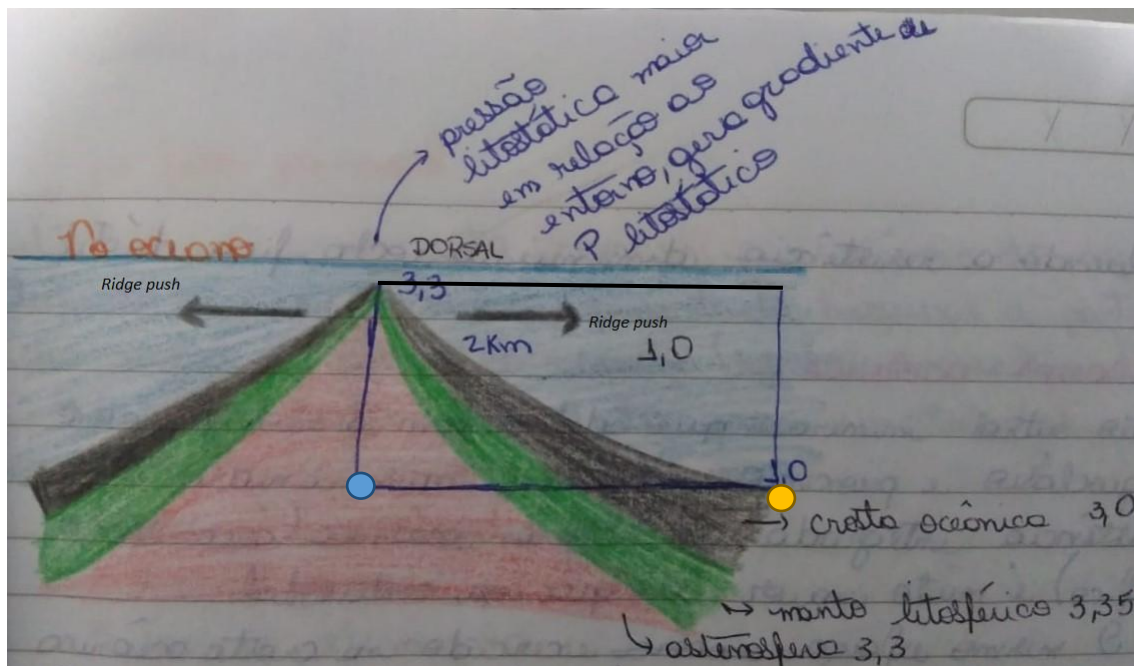 pressão
litostática maior
em relação ao
entorno, gera gradiente de
P litostático
No oceano
DORSAL
Ridge push
3,3
Ridge push
2Km
1,0
1,0
crosta oceânica 3,0
manto litosférico 3,35
astenosfera 3,3